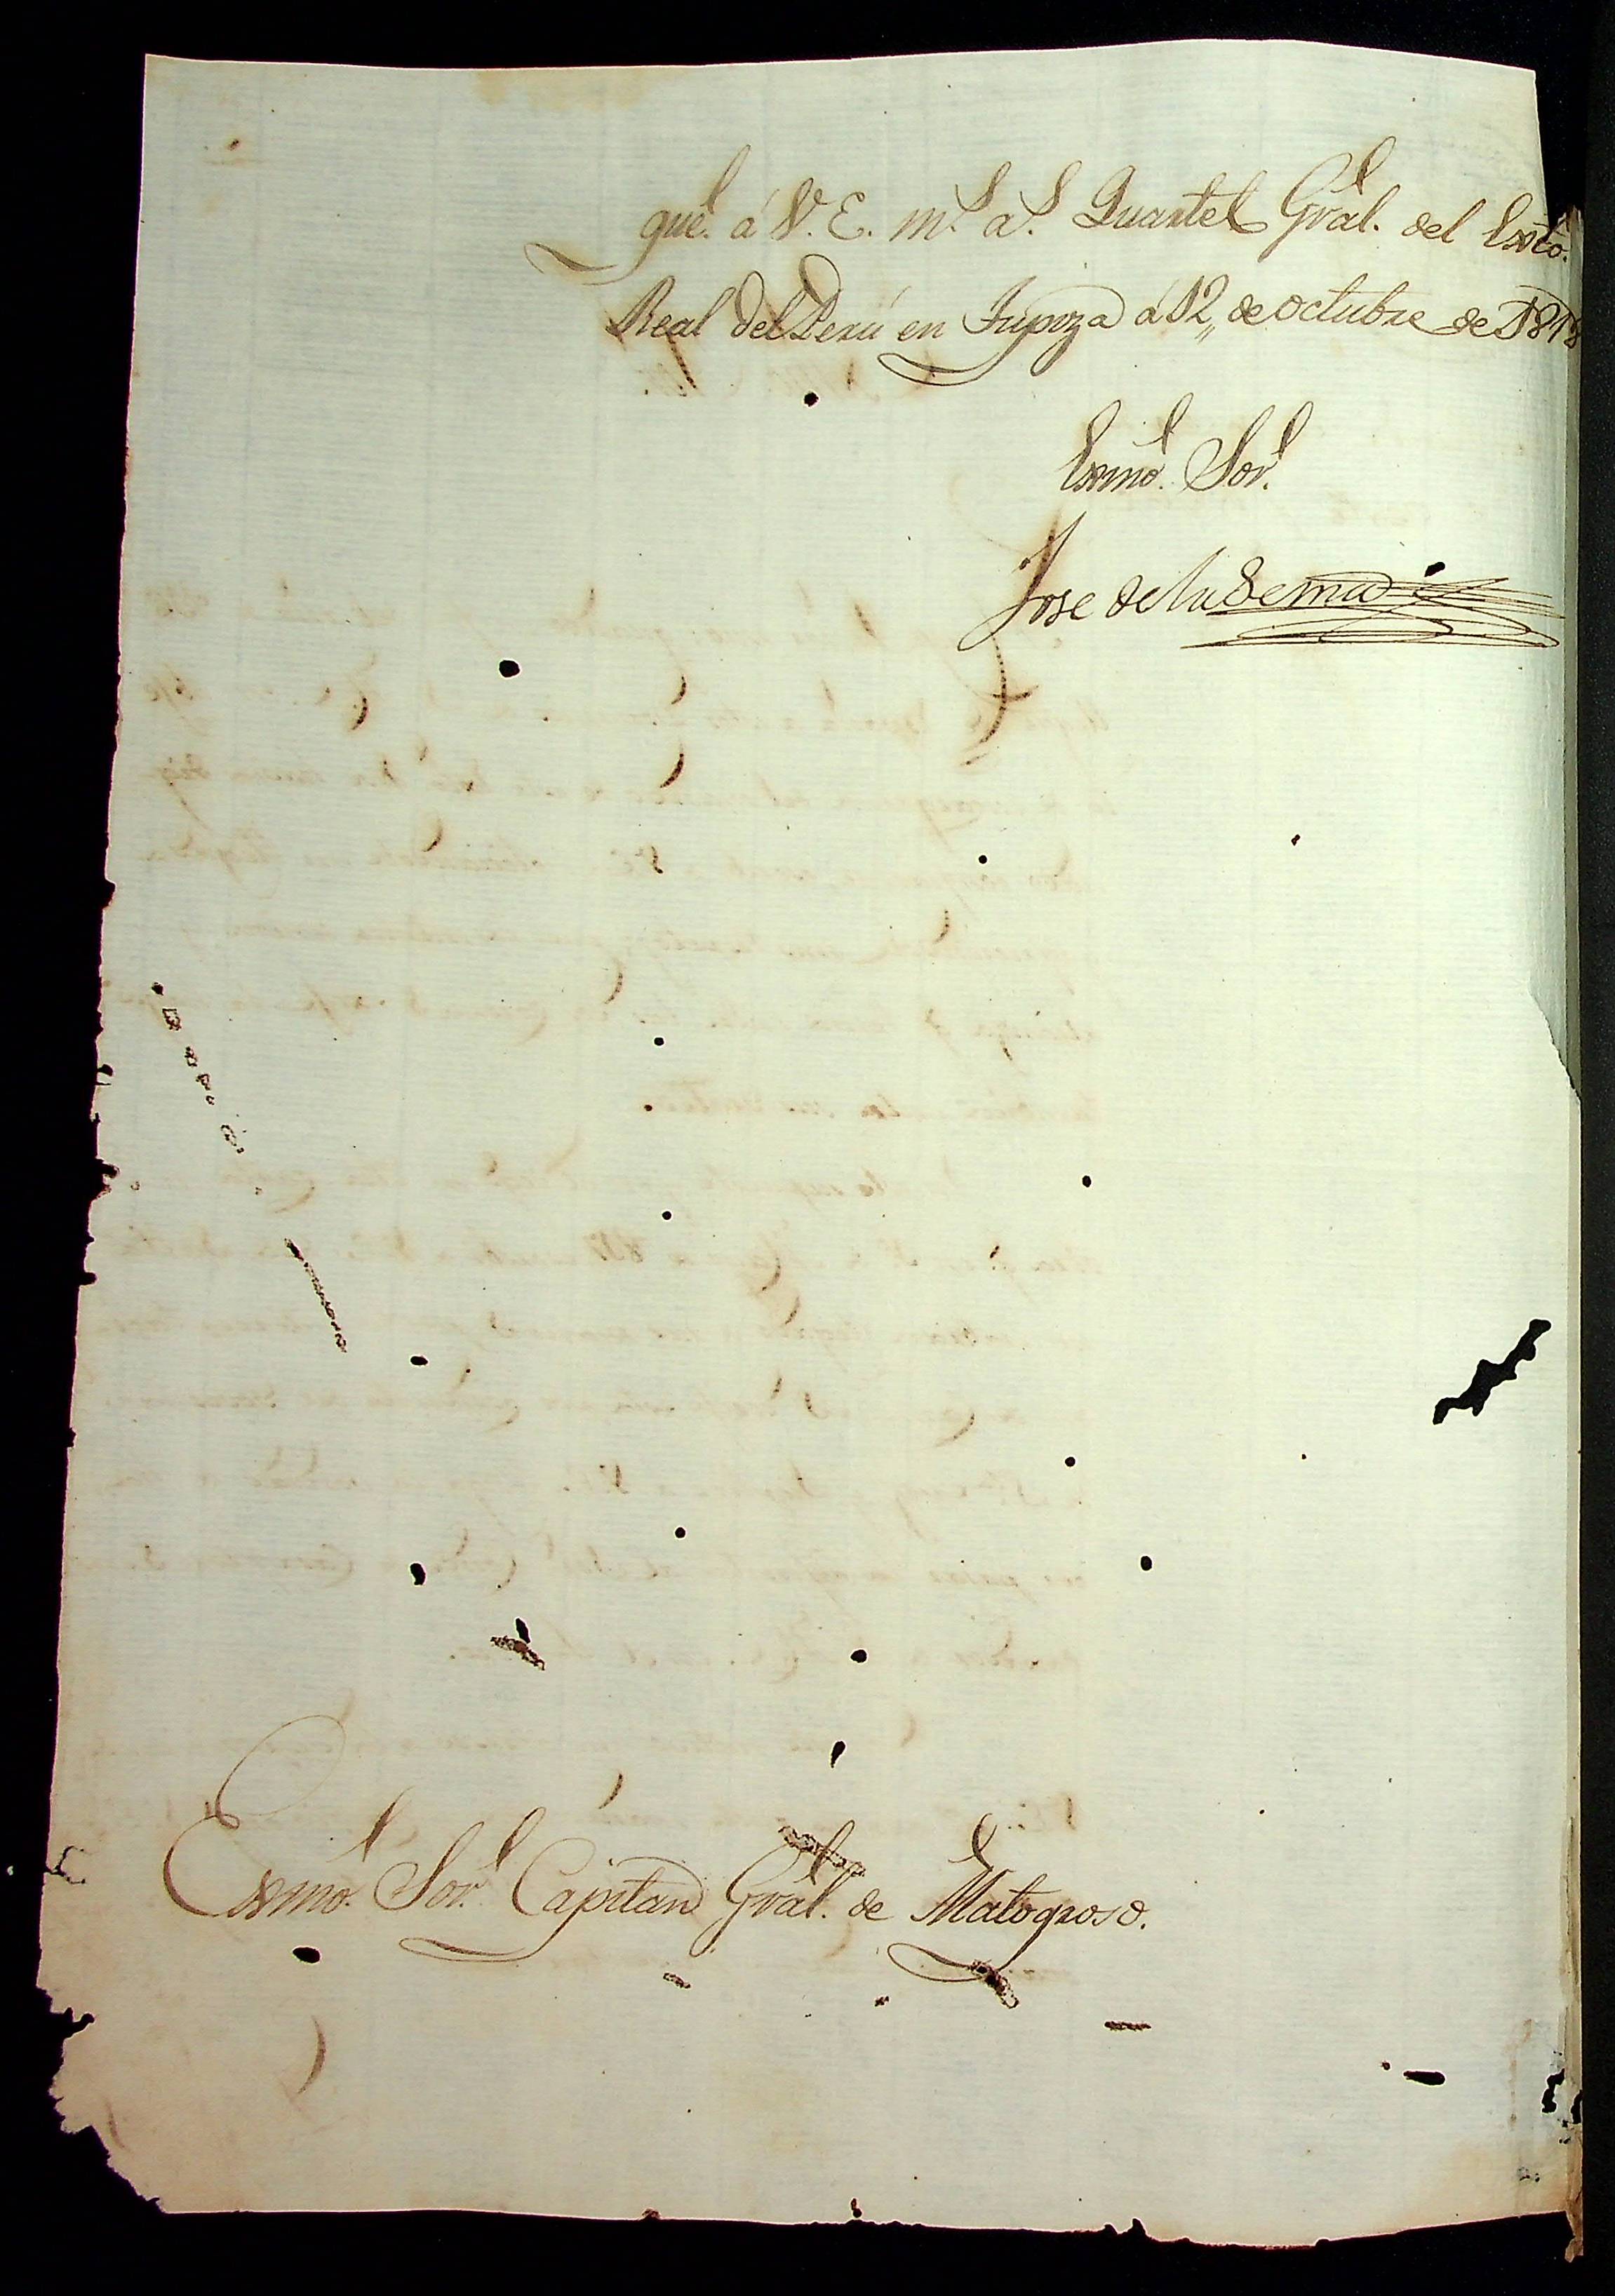 gue. á V. E. ms. as. Quartel Gral. del Exto.
Real del Perú en Tupiza á 12,, de octubre de 1818
Exmo. Sor.
Jose de la Serna
Exmo. Sor. Capitan Gral. de Matogroso.